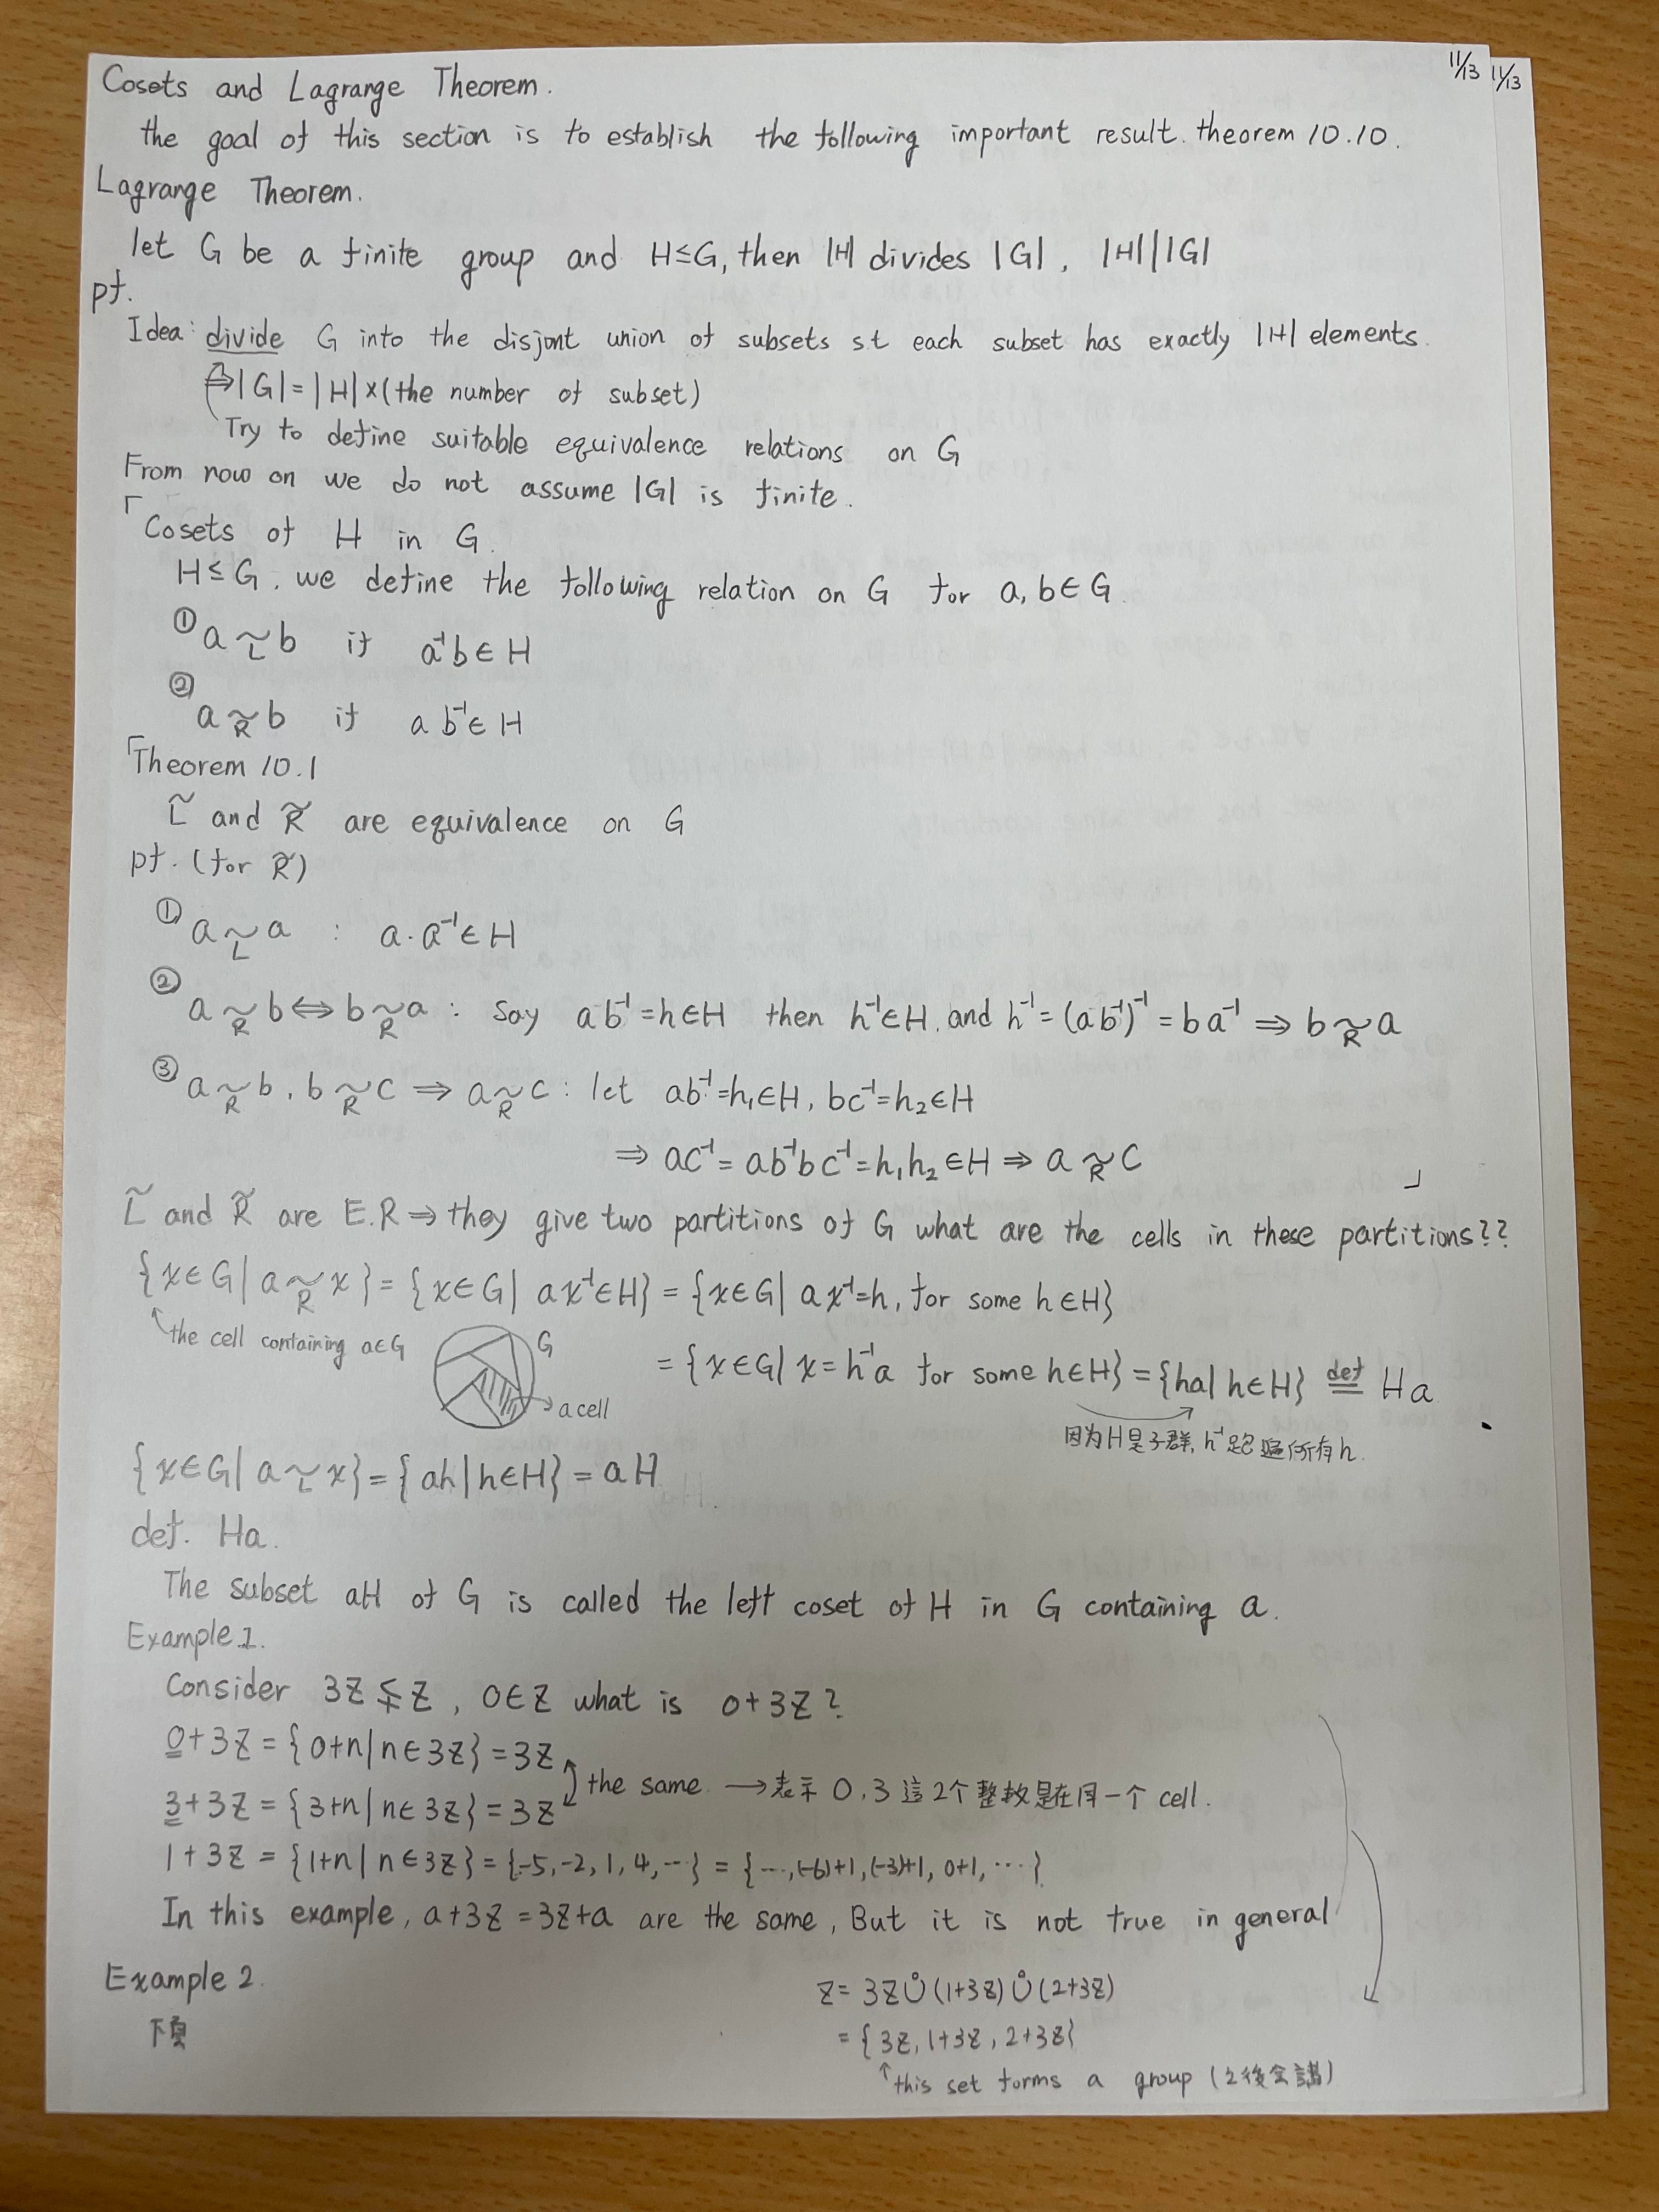 11/13 11/13
Cosets and Lagrange Theorem.
the goal of this section is to establish the following important result. theorem 10.10.
Lagrange Theorem.
let G be a finite group and H≤G, then |H| divides |G|, |H|||G|
pf.
Idea: divide G into the disjont union of subsets st each subset has exactly |H| elements.
⇒|G|=|H|×(the number of subset)
Try to define suitable equivalence relations on G
From now on we do not assume |G| is finite.
「Cosets of H in G.
H≤G, we define the following relation on G for a, b∈G
① a ~L b if a⁻¹b∈H
② a ~R b if ab⁻¹∈H
「Theorem 10.1
~L and ~R are equivalence on G
pf. (for ~R)
① a ~L a : a·a⁻¹∈H
② a ~R b ⇔ b ~R a : Say ab⁻¹=h∈H then h⁻¹∈H, and h⁻¹=(ab⁻¹)⁻¹=ba⁻¹ ⇒ b ~R a
③ a ~R b, b ~R c ⇒ a ~R c : let ab⁻¹=h₁∈H, bc⁻¹=h₂∈H
⇒ ac⁻¹=ab⁻¹bc⁻¹=h₁h₂∈H ⇒ a ~R c 」
~L and ~R are E.R ⇒ they give two partitions of G what are the cells in these partitions??
{x∈G| a ~R x}={x∈G| ax⁻¹∈H}={x∈G| ax⁻¹=h, for some h∈H}
the cell containing a∈G
G
a cell
={x∈G| x=h⁻¹a for some h∈H}={ha| h∈H} def= Ha
因为H是子群, h⁻¹跑遍所有h.
{x∈G| a ~L x}={ah|h∈H}=aH
def. Ha.
The subset aH of G is called the left coset of H in G containing a.
Example 1.
Consider 3Z≨Z, 0∈Z what is 0+3Z?
0+3Z={0+n|n∈3Z}=3Z
the same. → 表示 0,3 這2个整数是在同一个 cell.
3+3Z={3+n|n∈3Z}=3Z
1+3Z={1+n|n∈3Z}={-5,-2,1,4,…}={…,(-6)+1,(-3)+1,0+1,…}
In this example, a+3Z=3Z+a are the same, But it is not true in general
Example 2.
下頁
Z=3Z∪̊(1+3Z)∪̊(2+3Z)
={3Z,1+3Z,2+3Z}
↑this set forms a group (之後会講)